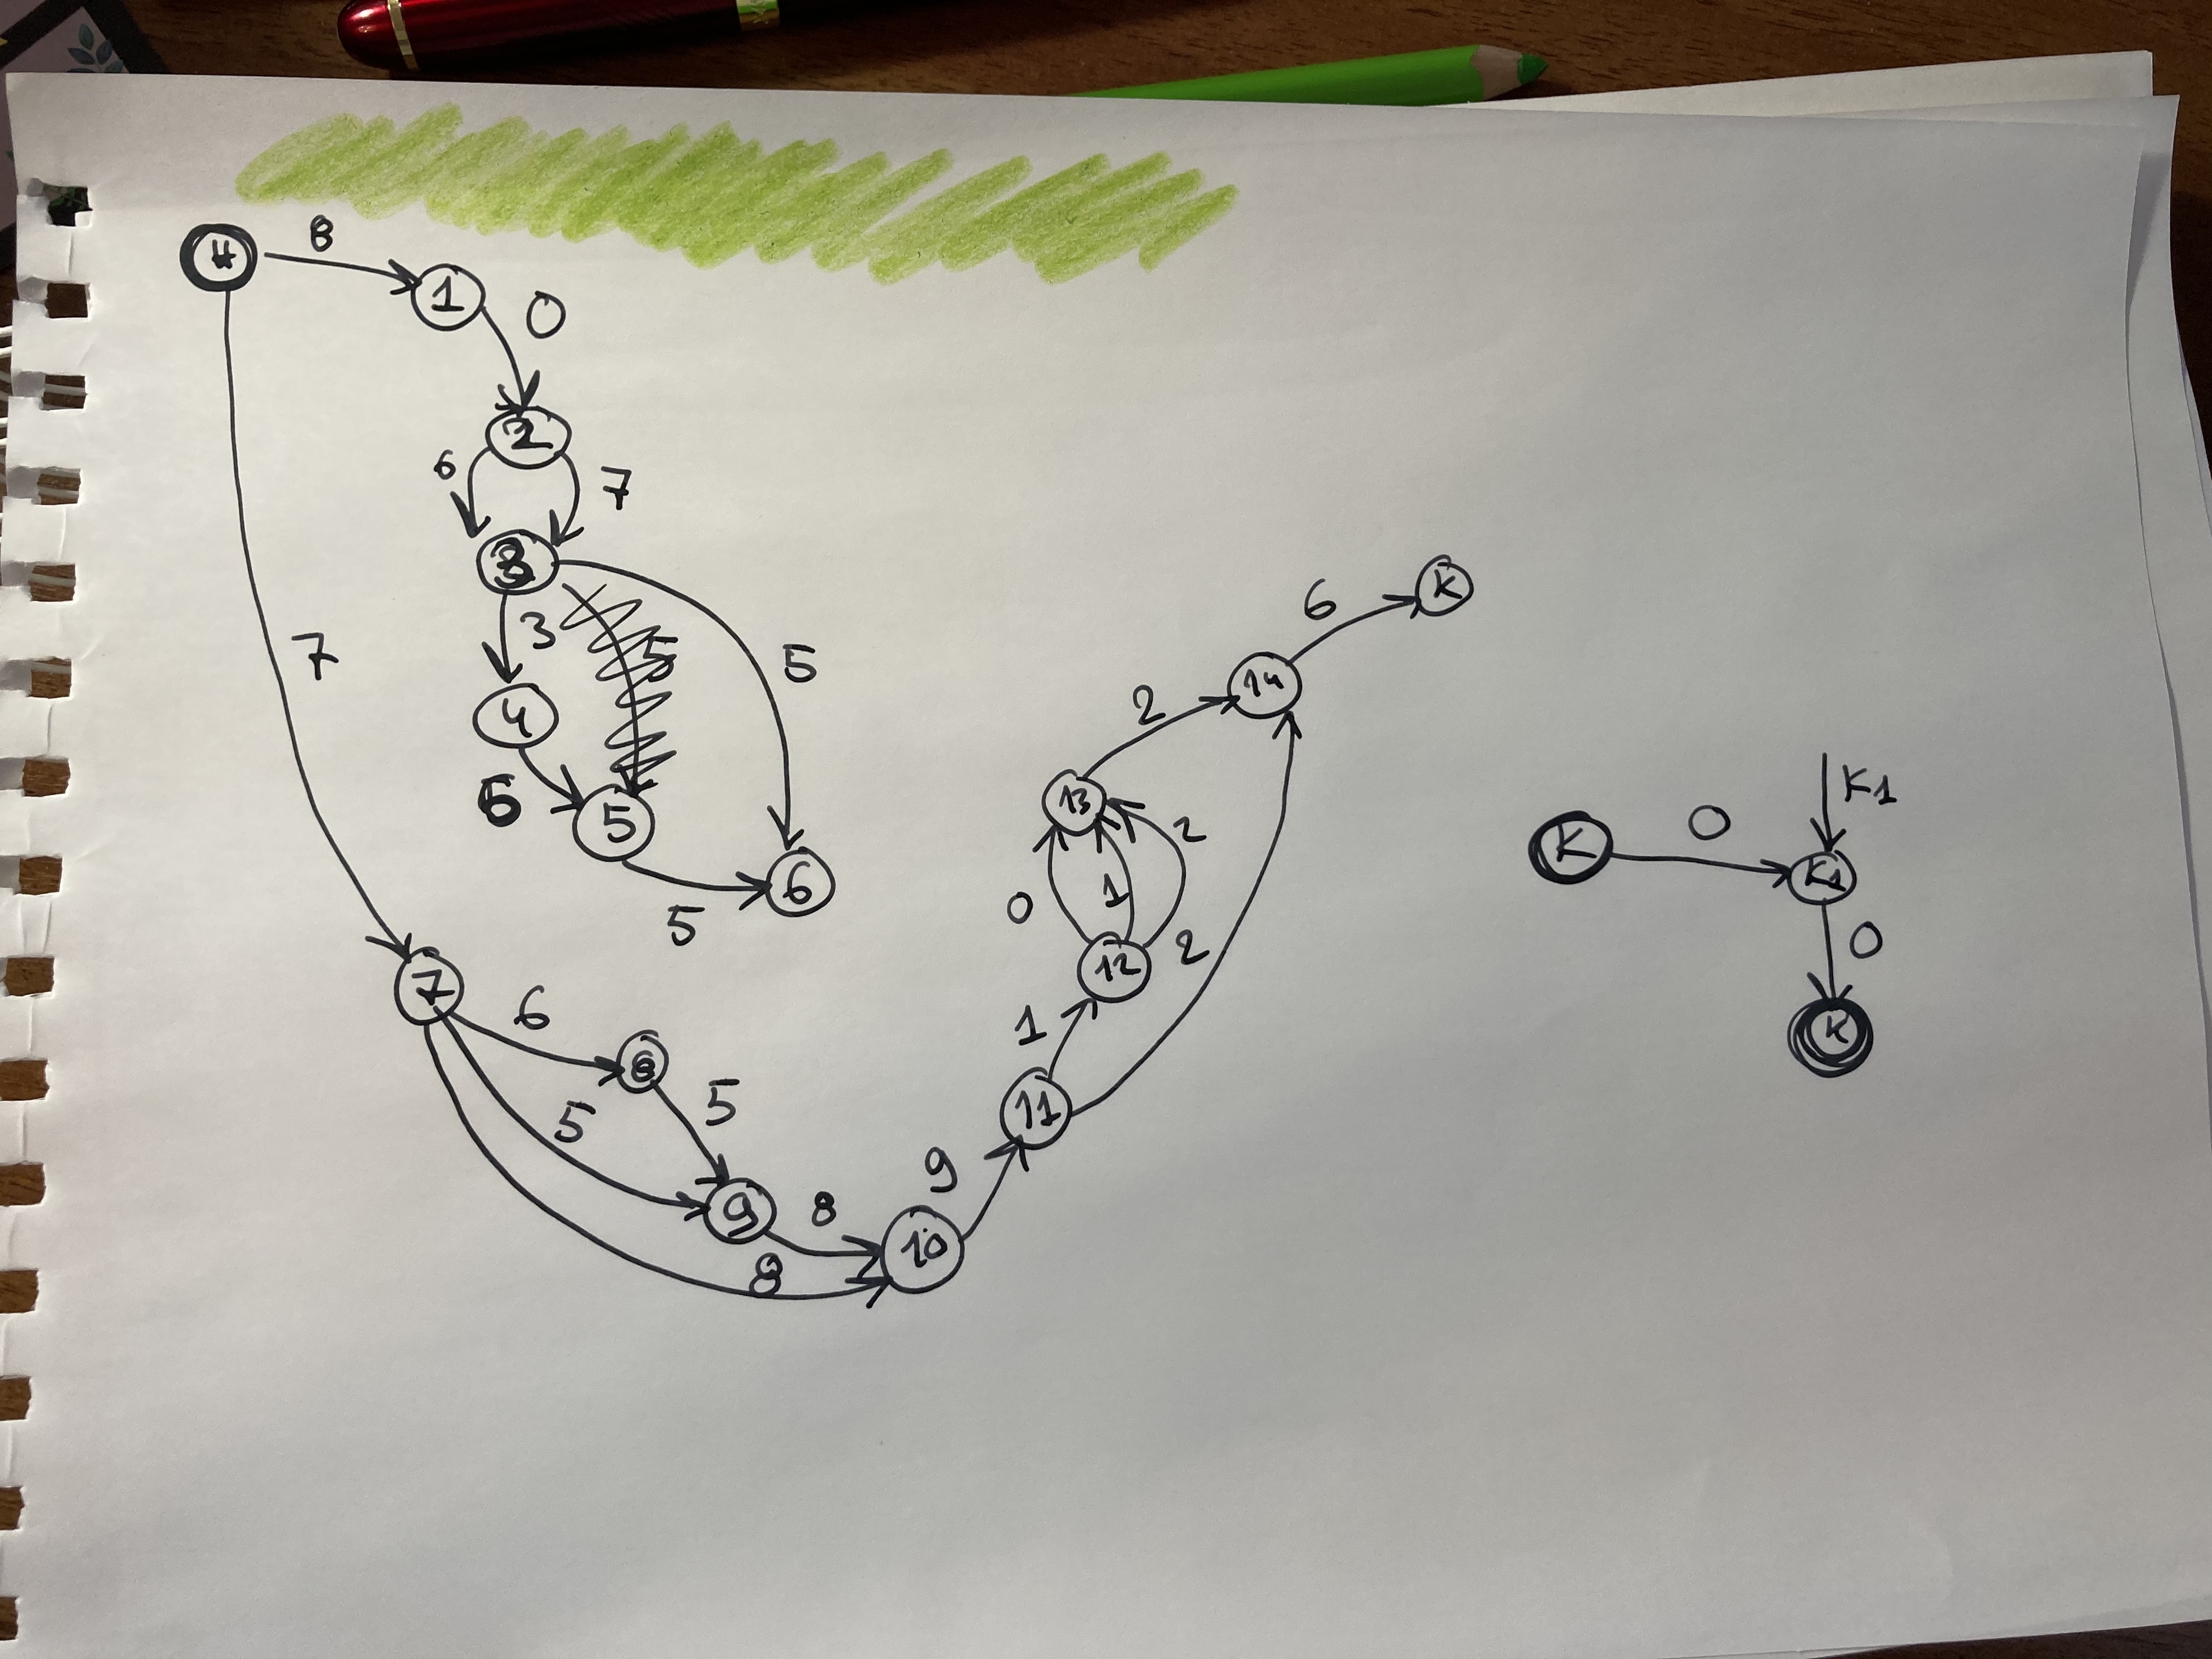 H 8
1 0
2
6 7
3
3 5 5
4
6 5
5 6
7
7
6
8
5 5
9 8
8
10
9
11
1 2
12
0 1 2
13
2
14
6 K
K 0 K1
K1
0
K